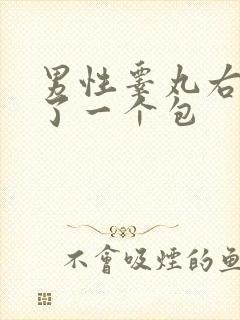 男性睾丸右
了一个包
不會吸煙的魚